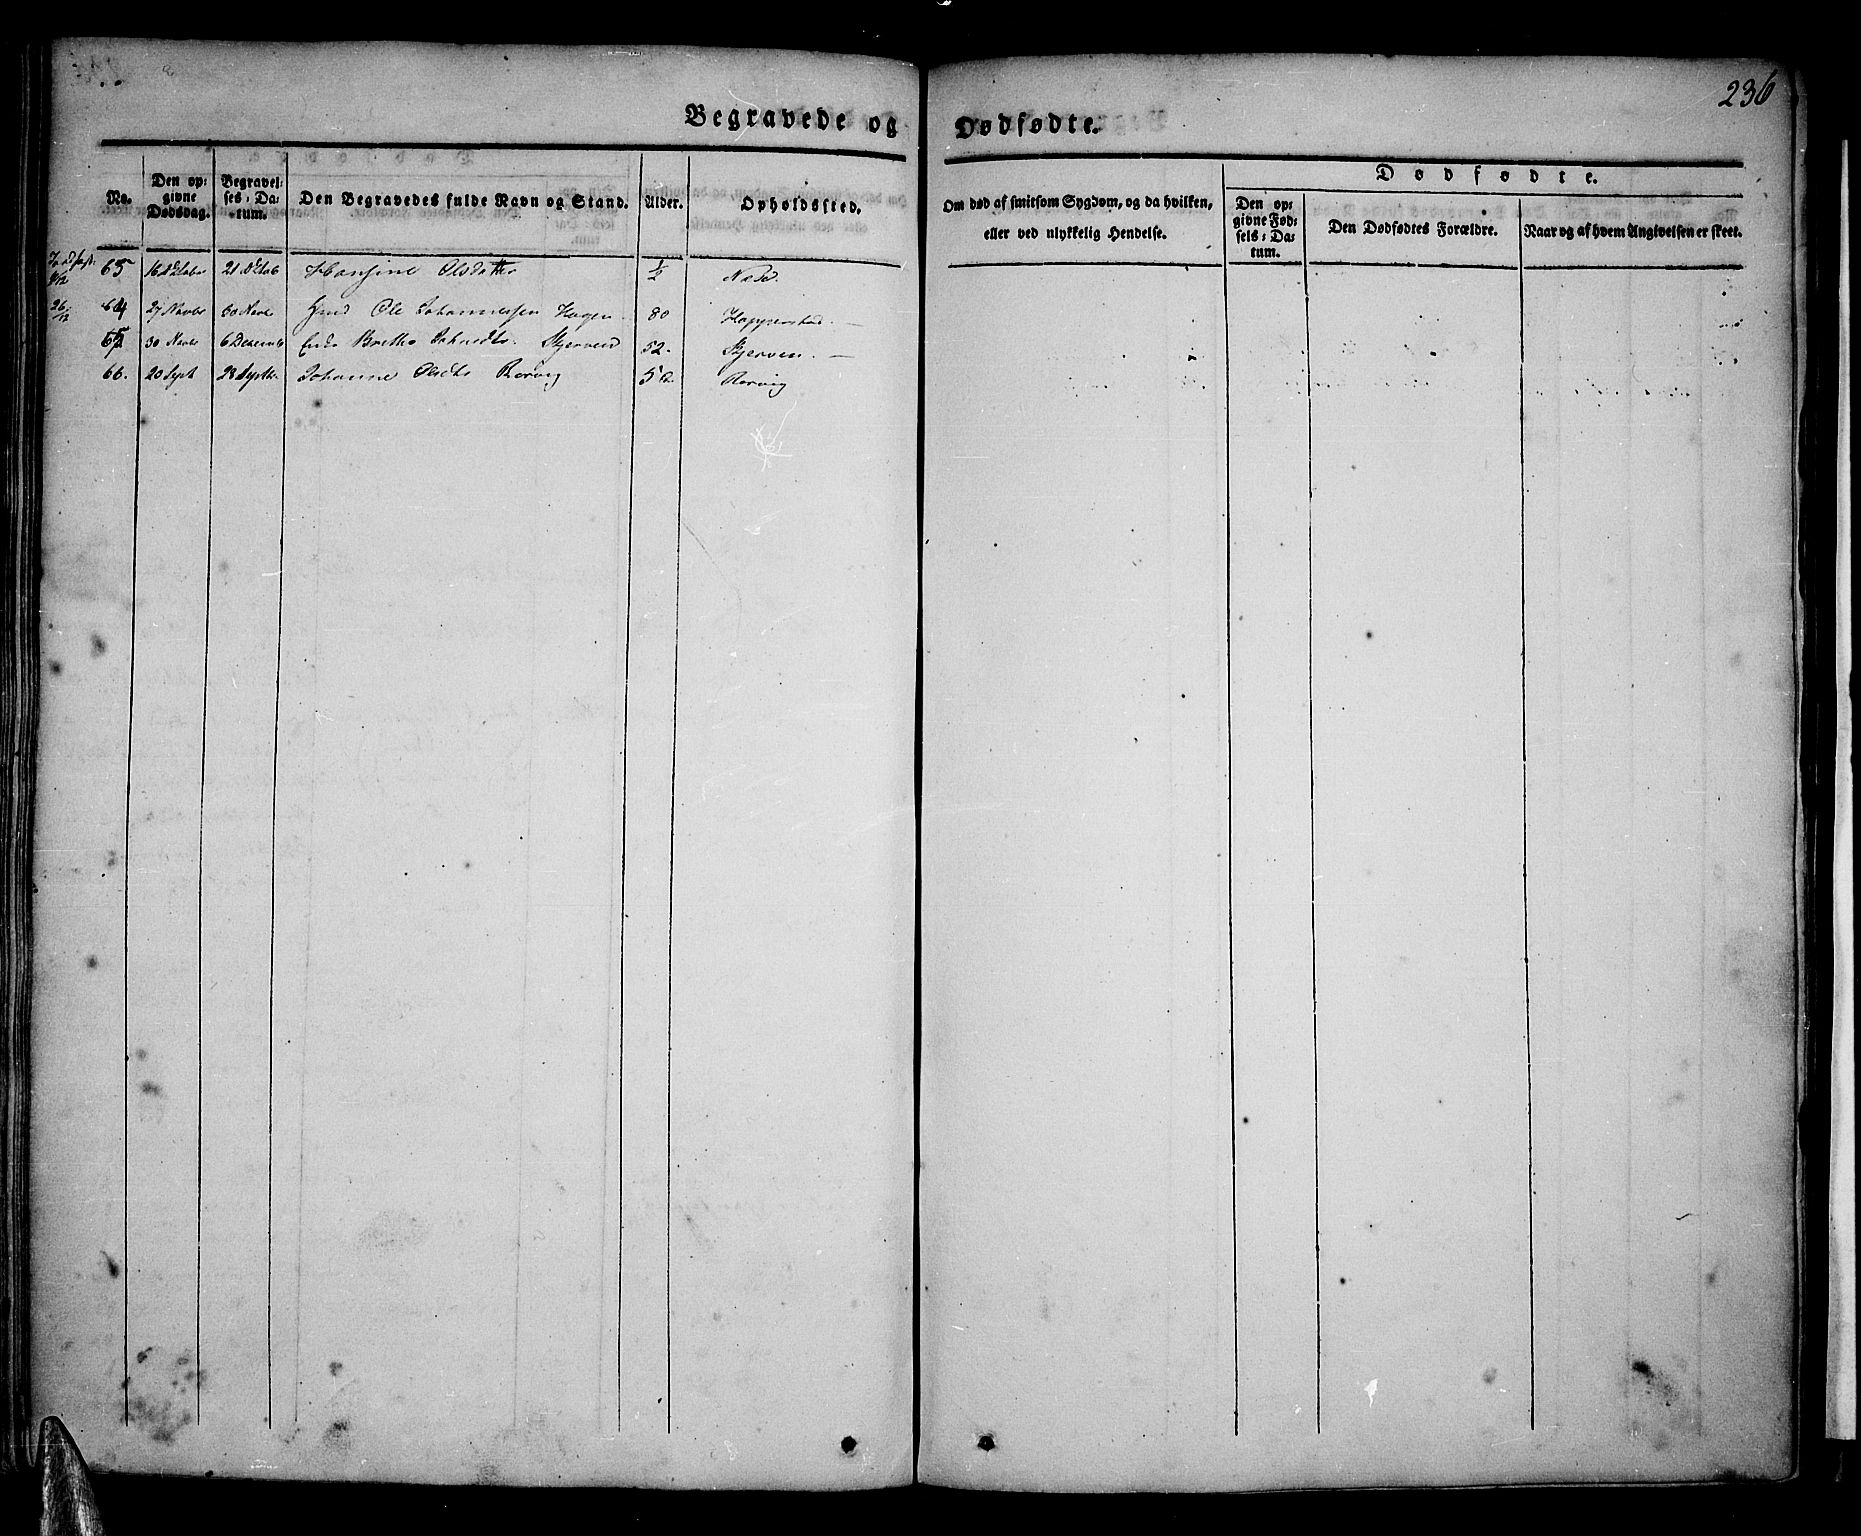 236
Begravede og Dødfødte.
No. Den opgivne Dødsdag. Begravelses-Datum. Den Begravedes fulde Navn og Stand. Alder. Opholdssted. Om død af smitsom Sygdom, og da hvilken, eller ved ulykkelig Hendelse. Dødfødte. Den opgivne Fødsels-Datum. Den Dødfødtes Forældre. Naar og af hvem Angivelsen er skeet.
16 21 Hansine Olsdatter ½
26/12 64 27 Novbr 30 Novbr Gmd Ole Johannessen Hagen 80 Happerstad
65 30 Novbr 6 Decemb Enke Johnsdtr. Skjerven 52. Skjerven.
66. 20 Sept 28 Septbr Johanne Olsdtr Rørvig Rørvig